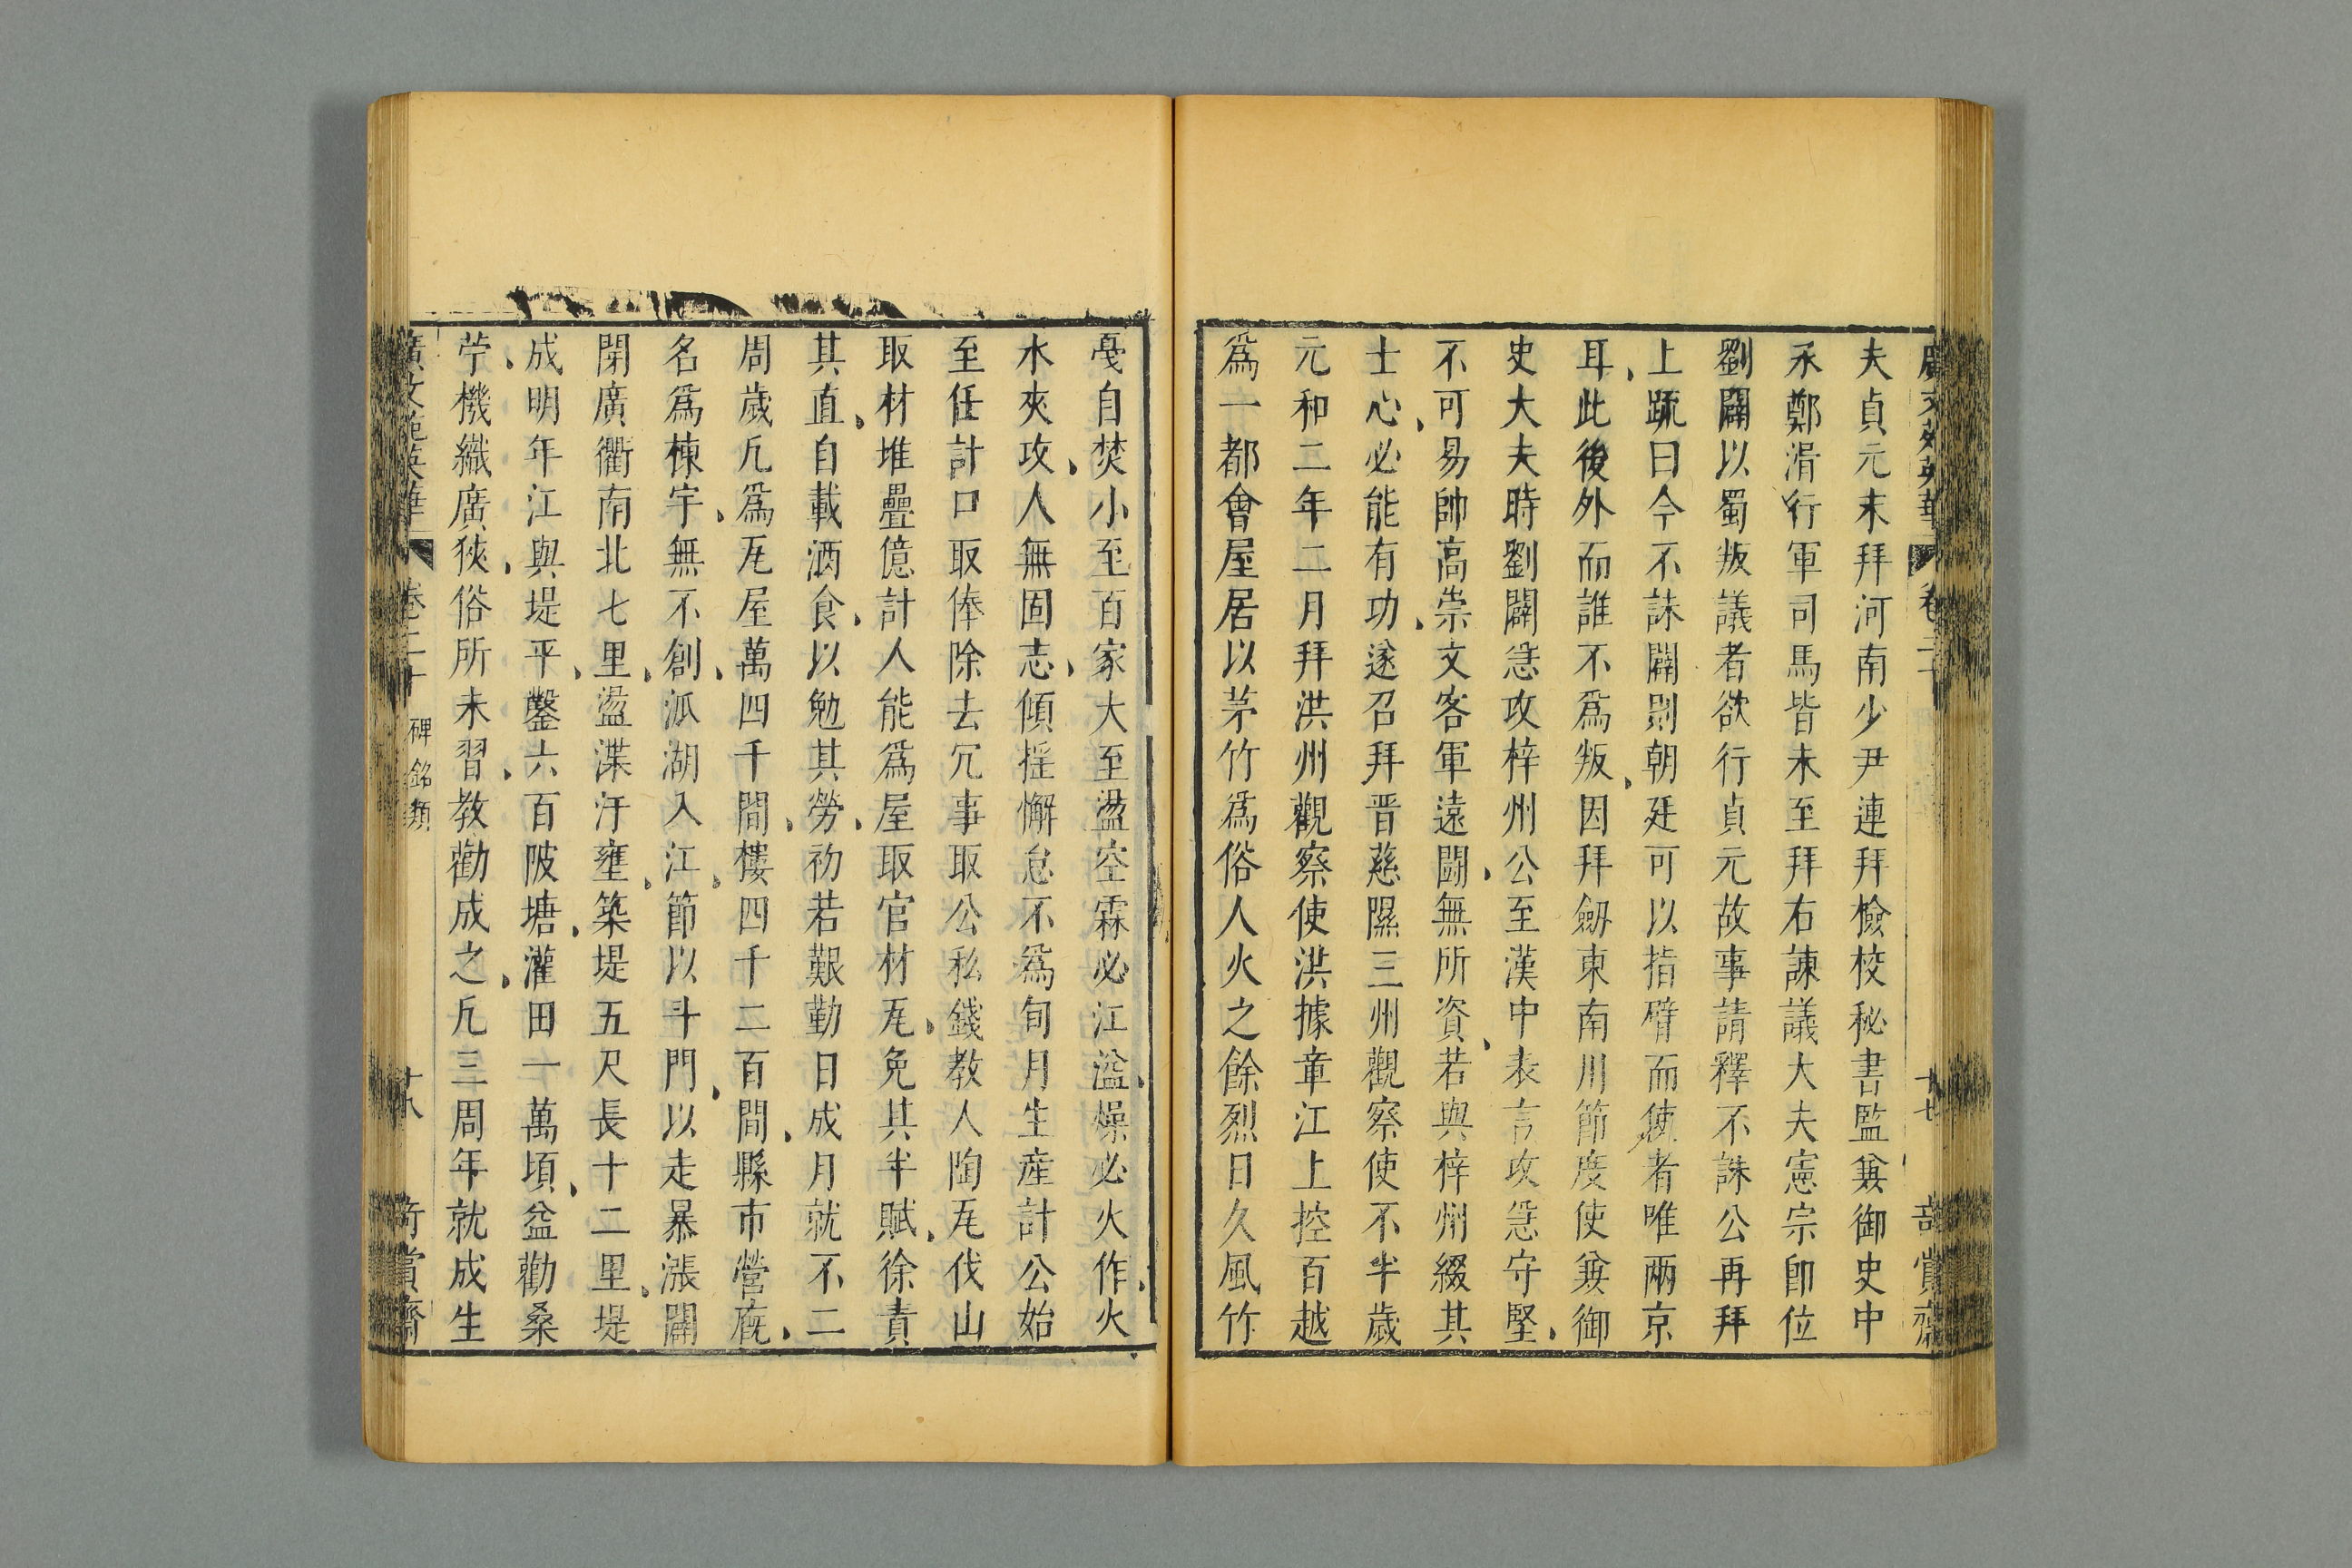 廣文苑英華 卷二十 十七 奇賞齋
夫貞元末拜河南少尹連拜檢校秘書監兼御史中
丞鄭滑行軍司馬皆未至拜右諫議大夫憲宗卽位
劉闢以蜀叛議者欲行貞元故事請釋不誅公再拜
上疏曰今不誅闢則朝廷可以指臂而使者唯兩京
耳此後外而誰不爲叛因拜劒東南川節度使兼御
史大夫時劉闢急攻梓州公至漢中表言攻急守堅
不可易帥高崇文客軍遠鬪無所資若與梓州綴其
士心必能有功遂召拜晋慈隰三州觀察使不半歲
元和二年二月拜洪州觀察使洪據章江上控百越
爲一都會屋居以茅竹爲俗人火之餘烈日久風竹
戞自焚小至百家大至盪空霖必江溢燥必火作火
水夾攻人無固志傾搖懈怠不爲旬月生產計公始
至任計口取俸除去冗事取公私錢教人陶瓦伐山
取材堆疊億計人能爲屋取官材瓦免其半賦徐責
其直自載酒食以勉其勞初若艱勤日成月就不二
周歲凡爲瓦屋萬四千間樓四千二百間縣市營廐
名爲棟宇無不創泒湖入江節以斗門以走暴漲闢
開廣衢南北七里盪渫汙壅築堤五尺長十二里堤
成明年江與堤平鑿六百陂塘灌田一萬頃益勸桑
苧機織廣狹俗所未習教勸成之凡三周年就成生
廣文苑英華 卷二十 碑銘類 十八 奇賞齋